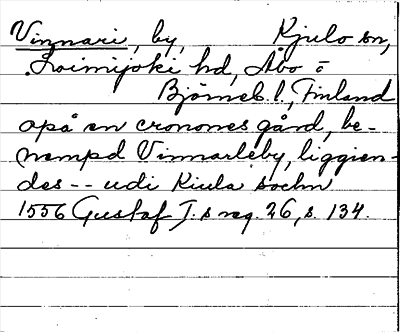 Vinnari, by, Kjulo sn,
Loimijoki hd, Åbo o
Björneb. l., Finland
opå en cronones gård, be-
nempd Vinnarleby, liggien-
des -- udi Kiula sochn
1556 Gustaf I.s reg. 26, s. 134.